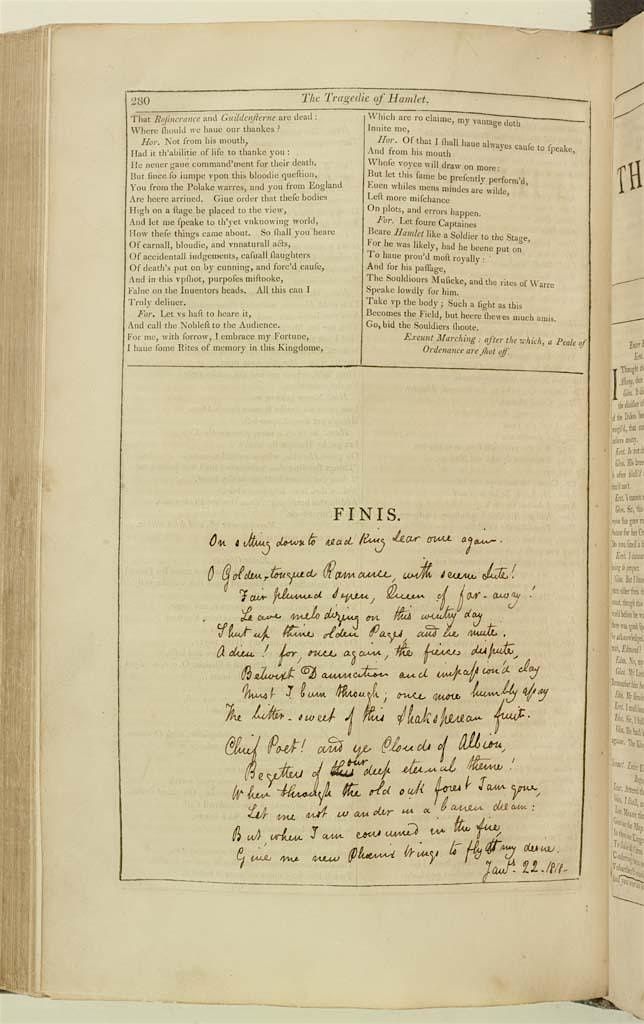 280
The Tragedie of Hamlet.
That Roſincrance and Guildenſterne are dead:
Where ſhould we haue our thankes?
Hor. Not from his mouth,
Had it th'abilitie of life to thanke you:
He neuer gaue command'ment for their death.
But ſince ſo iumpe vpon this bloodie queſtion,
You from the Polake warres, and you from England
Are heere arriued. Giue order that theſe bodies
High on a ſtage be placed to the view,
And let me ſpeake to th'yet vnknowing world,
How theſe things came about. So ſhall you heare
Of carnall, bloudie, and vnnaturall acts,
Of accidentall iudgements, caſuall ſlaughters
Of death's put on by cunning, and forc'd cauſe,
And in this vpſhot, purpoſes miſtooke,
Falne on the Inuentors heads. All this can I
Truly deliuer.
For. Let vs haſt to heare it,
And call the Nobleſt to the Audience.
For me, with ſorrow, I embrace my Fortune,
I haue ſome Rites of memory in this Kingdome,
Which are ro claime, my vantage doth
Inuite me,
Hor. Of that I ſhall haue alwayes cauſe to ſpeake,
And from his mouth
Whoſe voyce will draw on more:
But let this ſame be preſently perform'd,
Euen whiles mens mindes are wilde,
Leſt more miſchance
On plots, and errors happen.
For. Let foure Captaines
Beare Hamlet like a Soldier to the Stage,
For he was likely, had he beene put on
To haue prou'd moſt royally:
And for his paſſage,
The Souldiours Muſicke, and the rites of Warre
Speake lowdly for him.
Take vp the body; Such a ſight as this
Becomes the Field, but heere ſhewes much amis.
Go, bid the Souldiers ſhoote.
Exeunt Marching: after the which, a Peale of
Ordenance are ſhot off.
FINIS.
On sitting down to read King Lear once again.
O Golden-tongued Romance, with serene Lute!
Fair plumed Syren, Queen of far-away!
Leave melodizing on this wintry day
Shut up thine olden Pages, and be mute.
Adieu! for, once again, the fierce dispute,
Betwixt Damnation and impassion'd clay
Must I burn through; once more humbly aſsay
The bitter-sweet of this Shaksperean fruit.
Chief Poet! and ye Clouds of Albion,
Begetters of this our deep eternal theme!
When through the old oak forest I am gone,
Let me not wander in a barren dream:
But, when I am consumed in the fire,
Give me new Phœnix Wings to fly at my desire.
Jany. 22. 1818-
TH